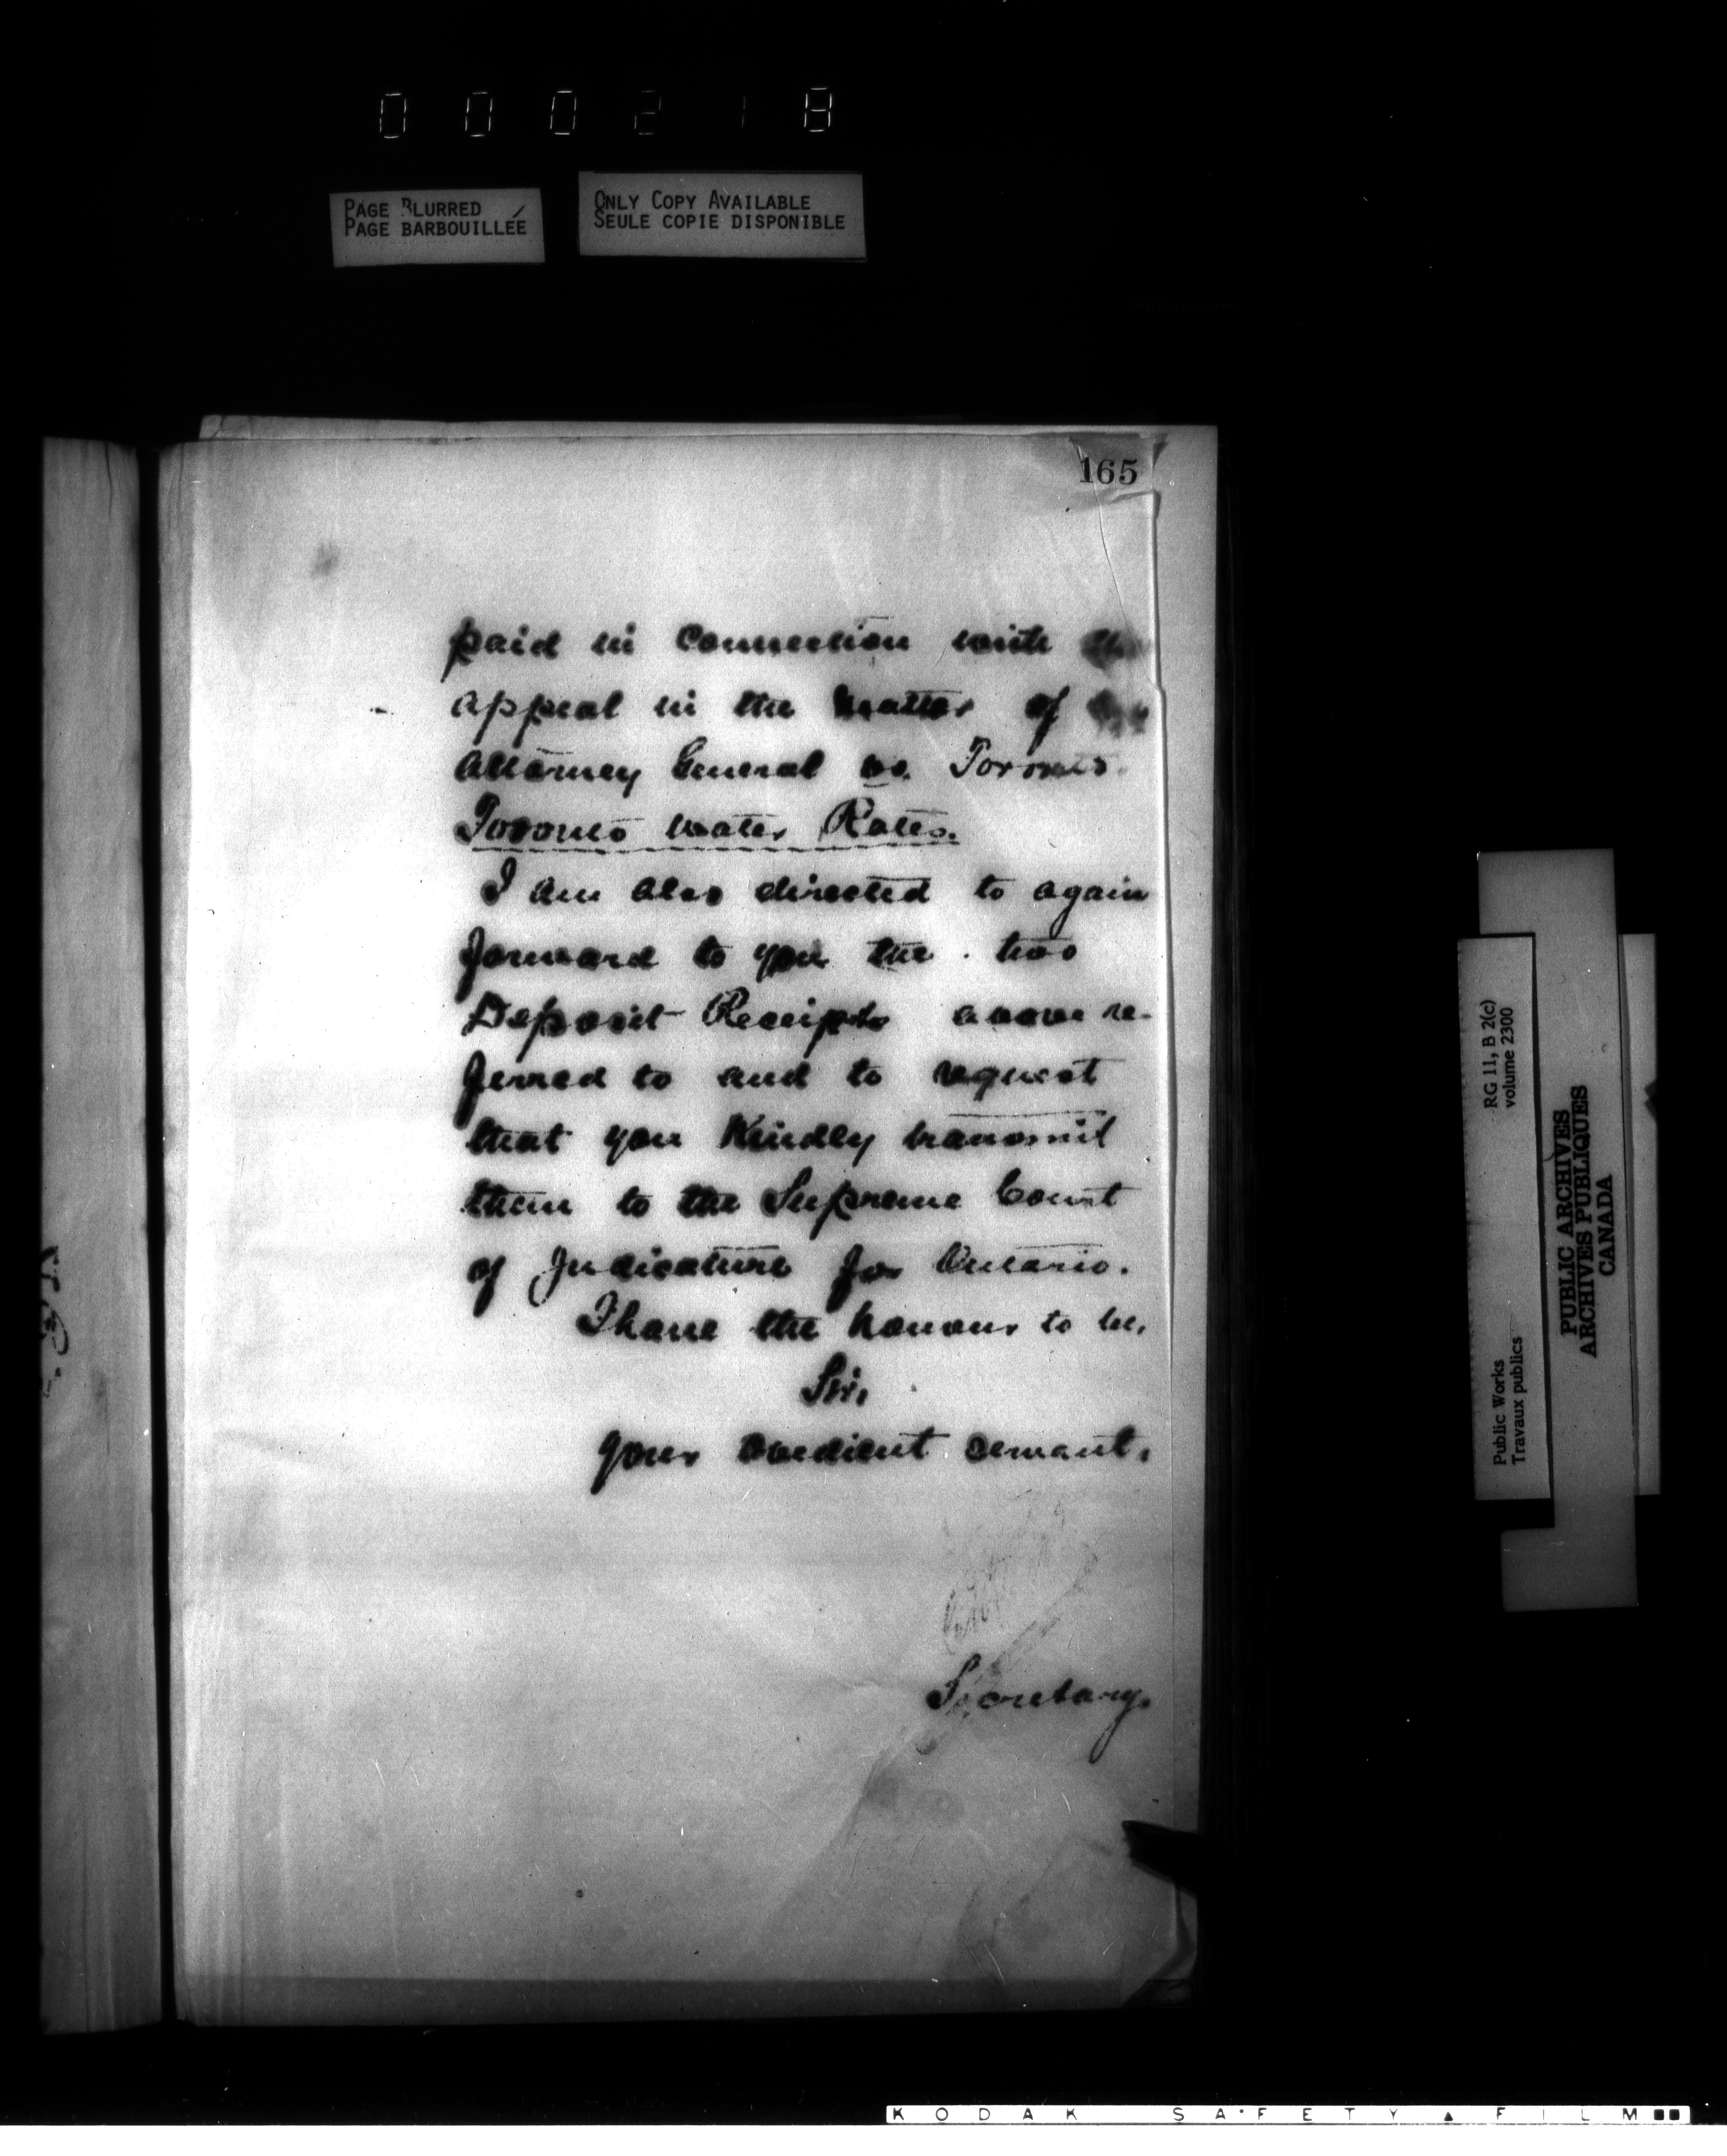 000218
PAGE BLURRED
PAGE BARBOUILLÉE
ONLY COPY AVAILABLE
SEULE COPIE DISPONIBLE
165
paid in connection with the
appeal in the matter of the
Attorney General vs. Toronto.
Toronto Water Rates.
I am also directed to again
forward to you the two
Deposit Receipts above re-
ferred to and to request
that you Kindly transmit
them to the Supreme Court
of Judicature for Ontario.
I have the honour to be,
Sir,
Your obedient servant,
Secretary.
RG 11, B 2(c)
volume 2300
Public Works
Travaux publics
PUBLIC ARCHIVES
ARCHIVES PUBLIQUES
CANADA
KODAK SAFETY FILM